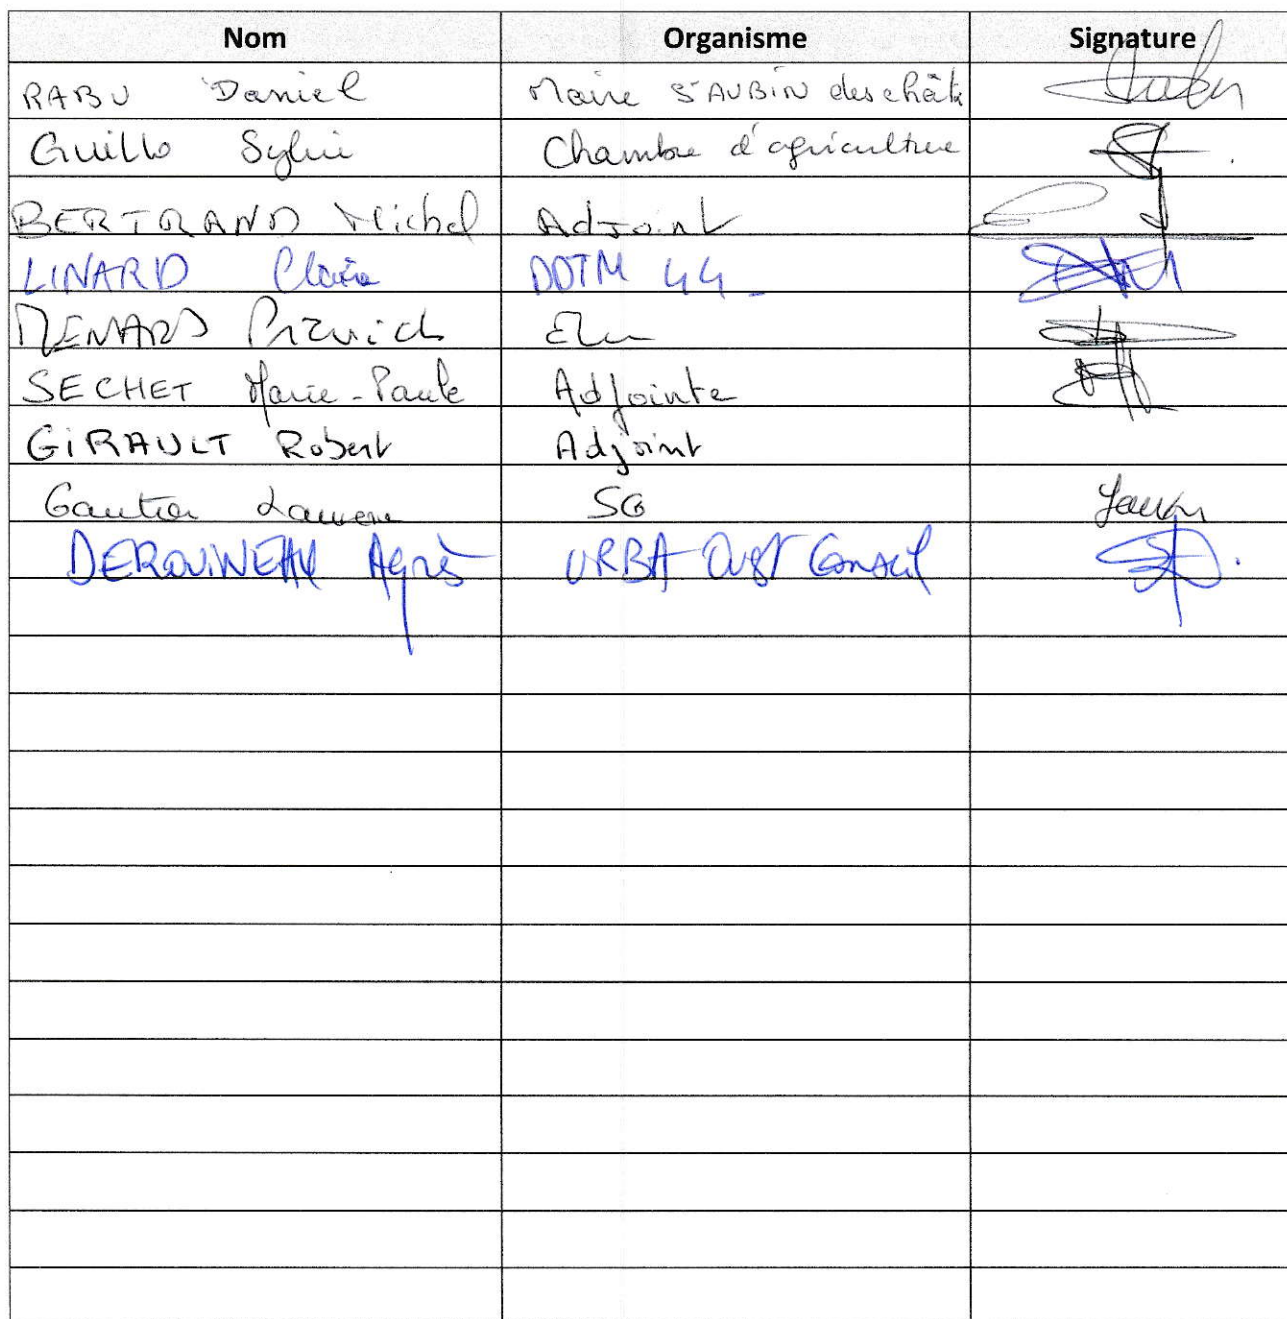 Nom Organisme Signature
RABU Daniel Maire St AUBIN des chât
Guillo Sylvie Chambre d'agriculture
BERTRAND Michel Adjoint
LINARD Claire DDTM 44
MENARD Elu
SECHET Marie-Paule Adjointe
GIRAULT Robert Adjoint
Gautier Laurence SG
DEROUINEAU Agnès URBA Ouest Conseil